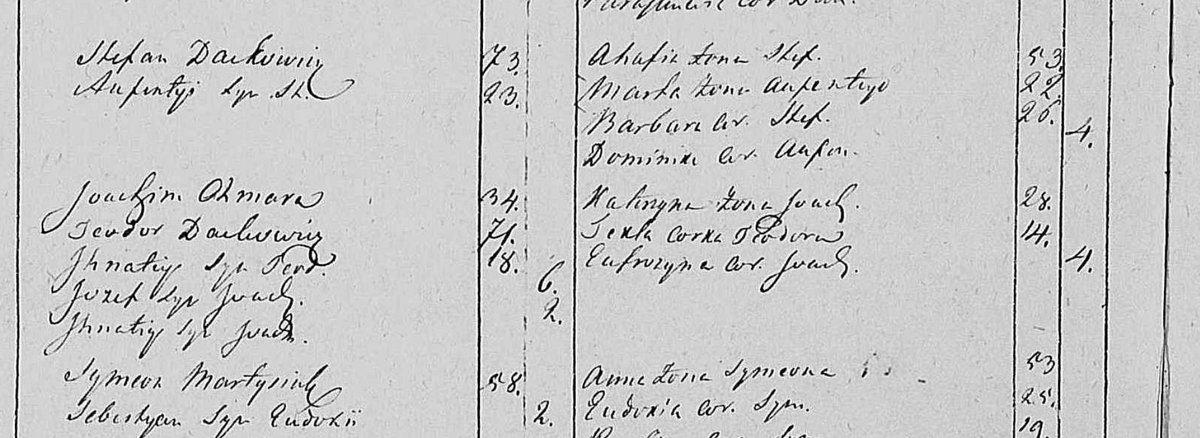 Stefan Dackowicz 73. Ahafia żona Stef. 53.
Auxentyi syn St. 23. Marta żona Auxentego 22.
Barbara cor. Stef. 26. 4.
Dominika cor. Auxen.
Joachim Chmara 34. Katrzyna żona Joach. 28.
Teodor Dackowicz 71. Tekla corka Teodora 14.
Jhnatiy syn Teod. 18. 6. Eufrozyna cor. Joach. 4.
Jozef syn Joach. 2.
Jhnatiy syn Joach.
Symeon Martysiuk 58. Anna żona Symeona 53
Sebestyan syn Eudoxii 2. Eudoxia cor. Sym. 25.
19.